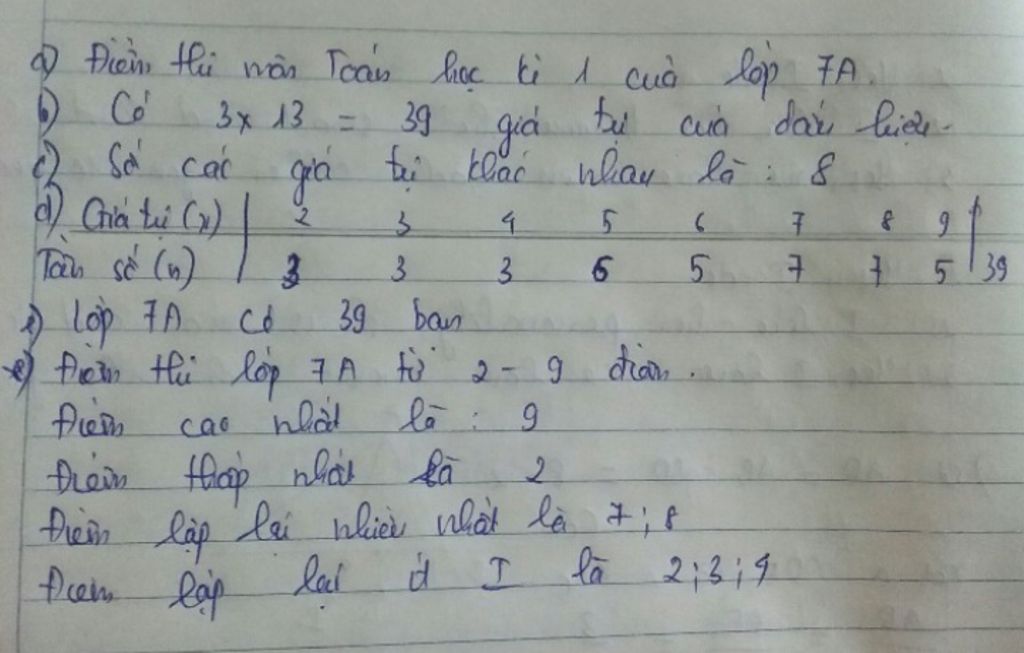 a) Điểm thi môn Toán học kì 1 của lớp 7A.
b) Có 3x13 = 39 giá trị của dấu hiệu.
c) Số các giá trị khác nhau là : 8
d) Giá trị (x) | 2 3 4 5 6 7 8 9
Tần số (n) | 3 3 3 6 5 7 7 5 | 39
e) lớp 7A có 39 bạn
e) Điểm thi lớp 7A từ 2 - 9 điểm.
Điểm cao nhất là : 9
Điểm thấp nhất là 2
Điểm lặp lại nhiều nhất là 7; 8
Điểm lặp lại ít I là 2;3;4